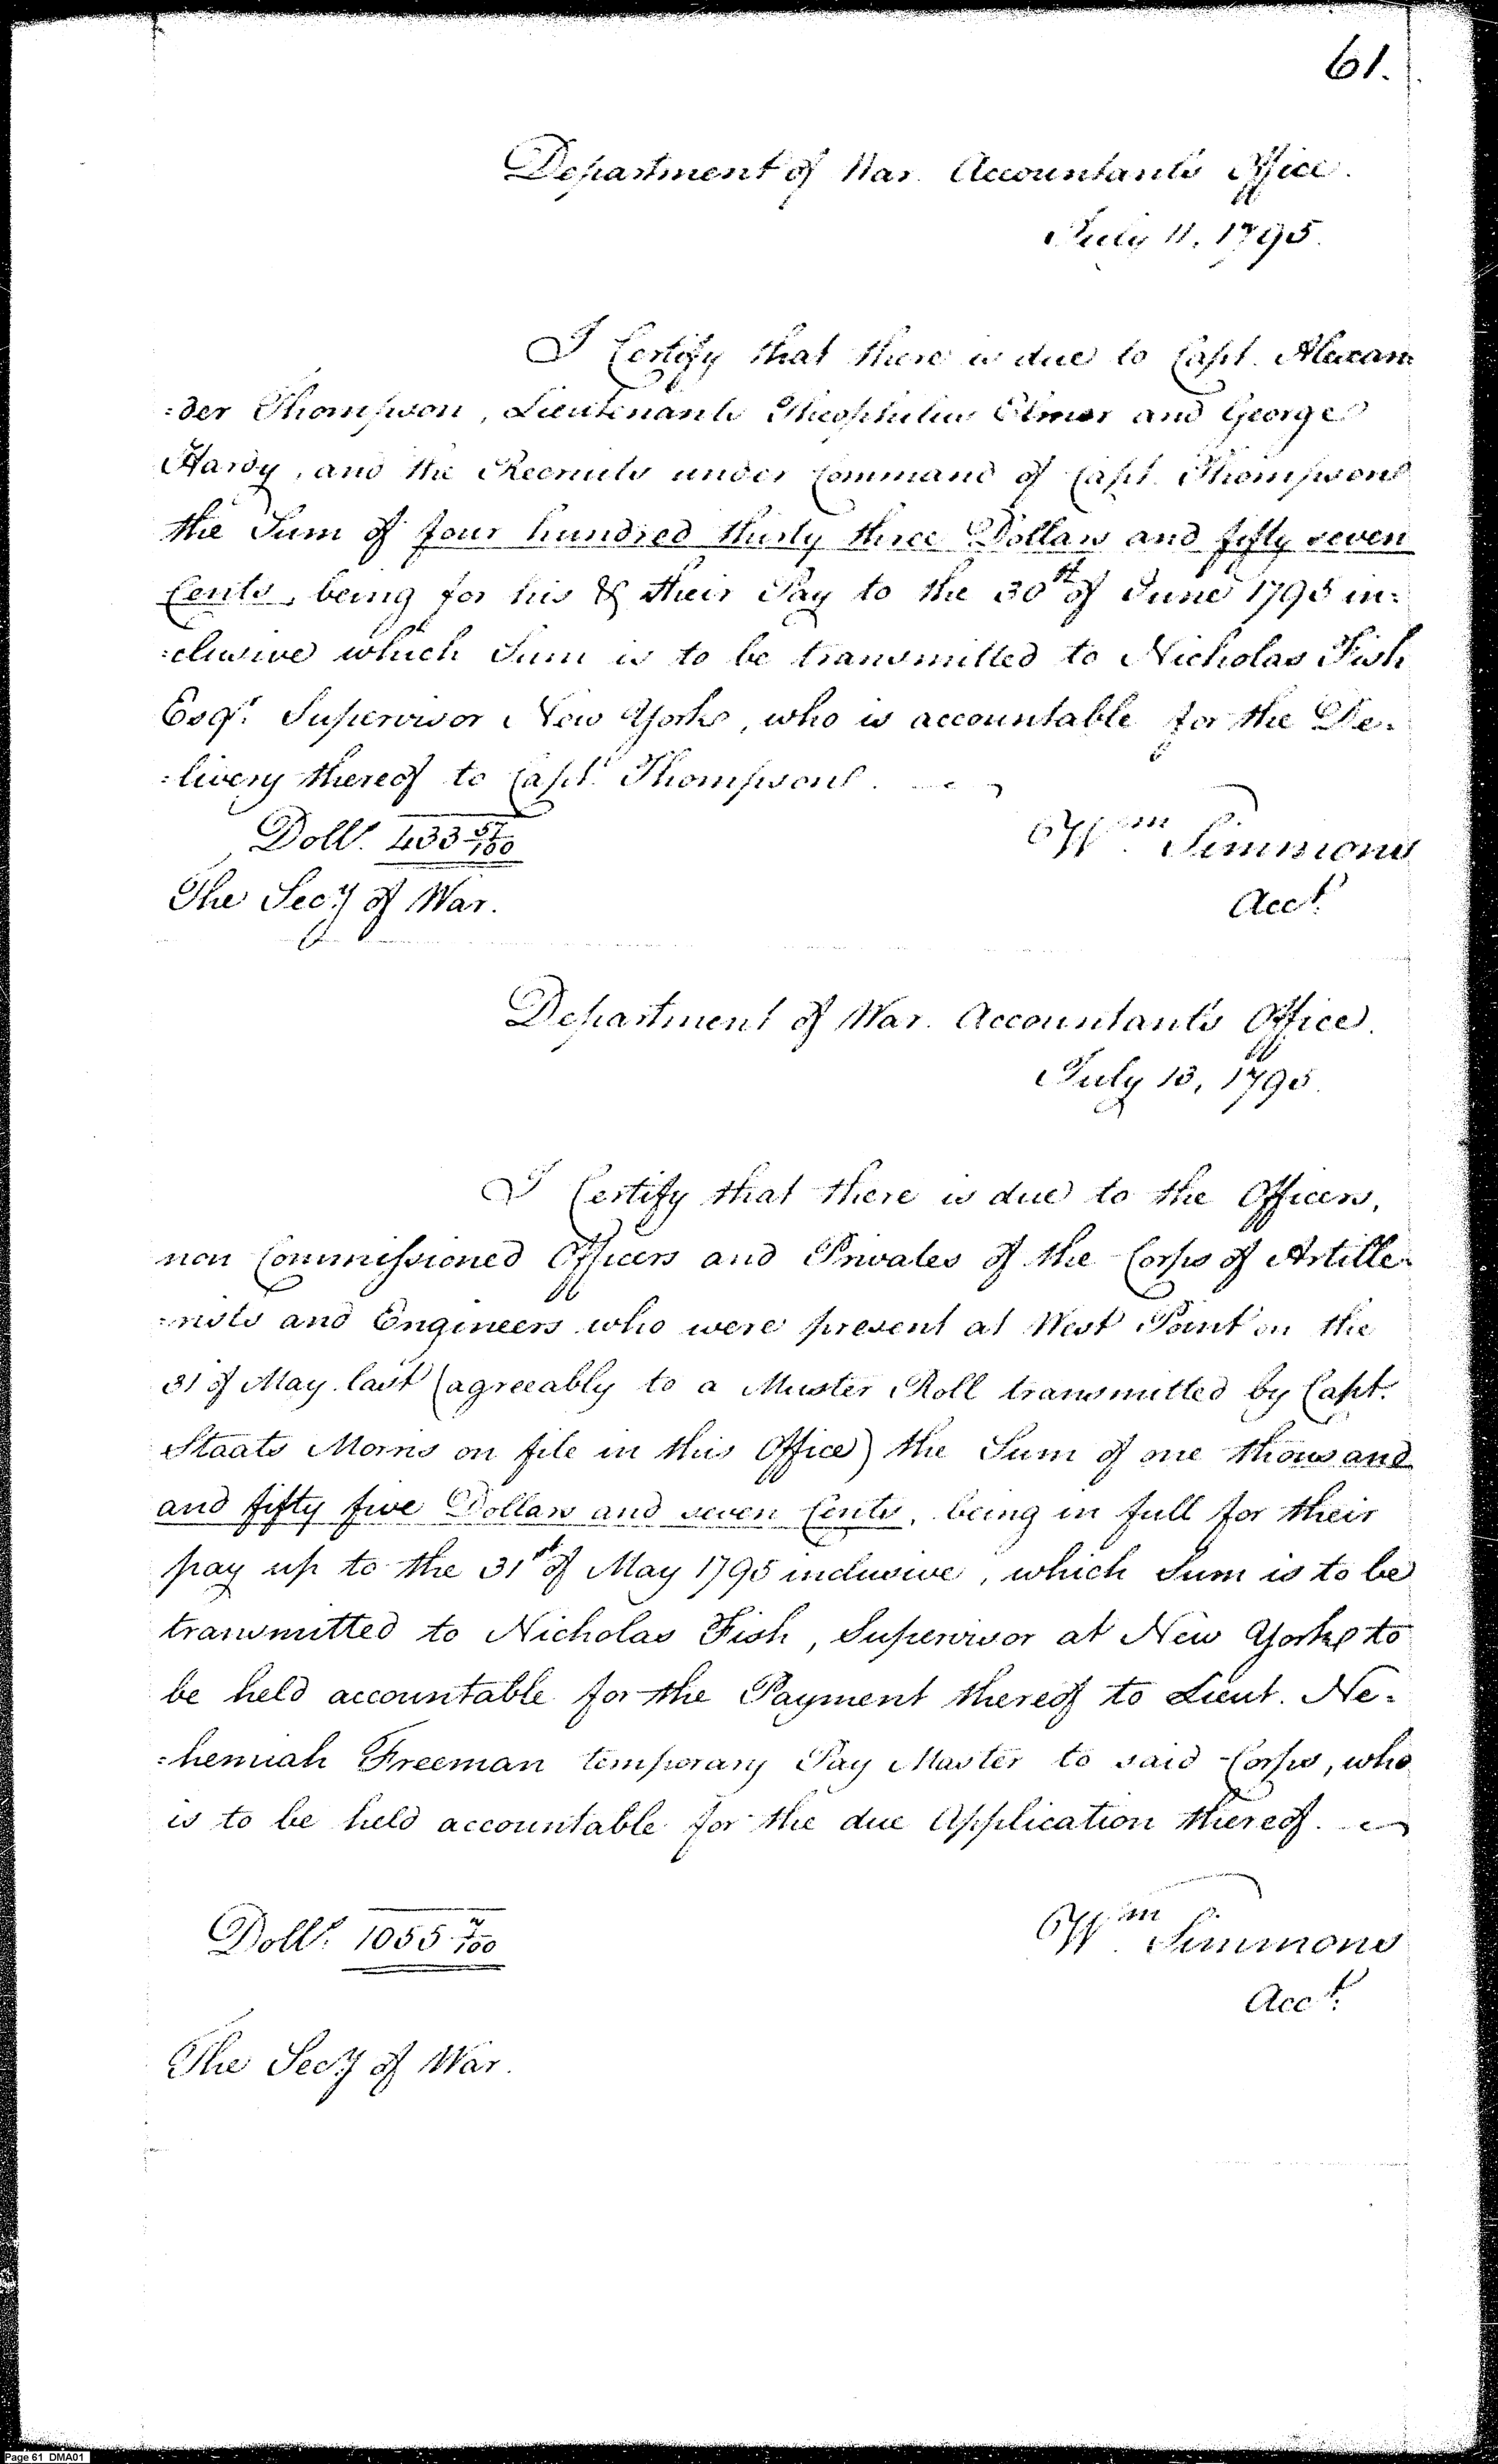 61.
Department of War. Accountants Office.
July 11, 1795.
I Certify that there is due to Capt. Alexan
=der Thompson, Lieutenants Theophilus Elmer and George
Hardy, and the Recruits under Command of Capt. Thompson
the Sum of four hundred thirty three Dollars and fifty seven
Cents, being for his & their Pay to the 30th of June 1795 in=
=clusive which Sum is to be transmitted to Nicholas Fish
Esqr. Supervisor New York, who is accountable for the De=
=livery thereof to Capt. Thompson.
Dolls. 433 57/100
Wm. Simmons
The Secy of War.
Acct.
Department of War. Accountants Office.
July 13, 1795.
I Certify that there is due to the Officers,
non Commissioned Officers and Privates of the Corps of Artille=
=rists and Engineers who were present at West Point on the
31 of May last (agreeably to a Muster Roll transmitted by Capt.
Staats Morris on file in this Office) the Sum of one thousand
and fifty five Dollars and seven Cents, being in full for their
pay up to the 31st of May 1795 inclusive, which Sum is to be
transmitted to Nicholas Fish, Supervisor at New York to
be held accountable for the Payment thereof to Lieut. Ne=
=hemiah Freeman temporary Pay Master to said Corps, who
is to be held accountable for the due Application thereof.
Dolls. 1055 7/100
Wm. Simmons
Acct.
The Secy of War.
Page 61 DMA01